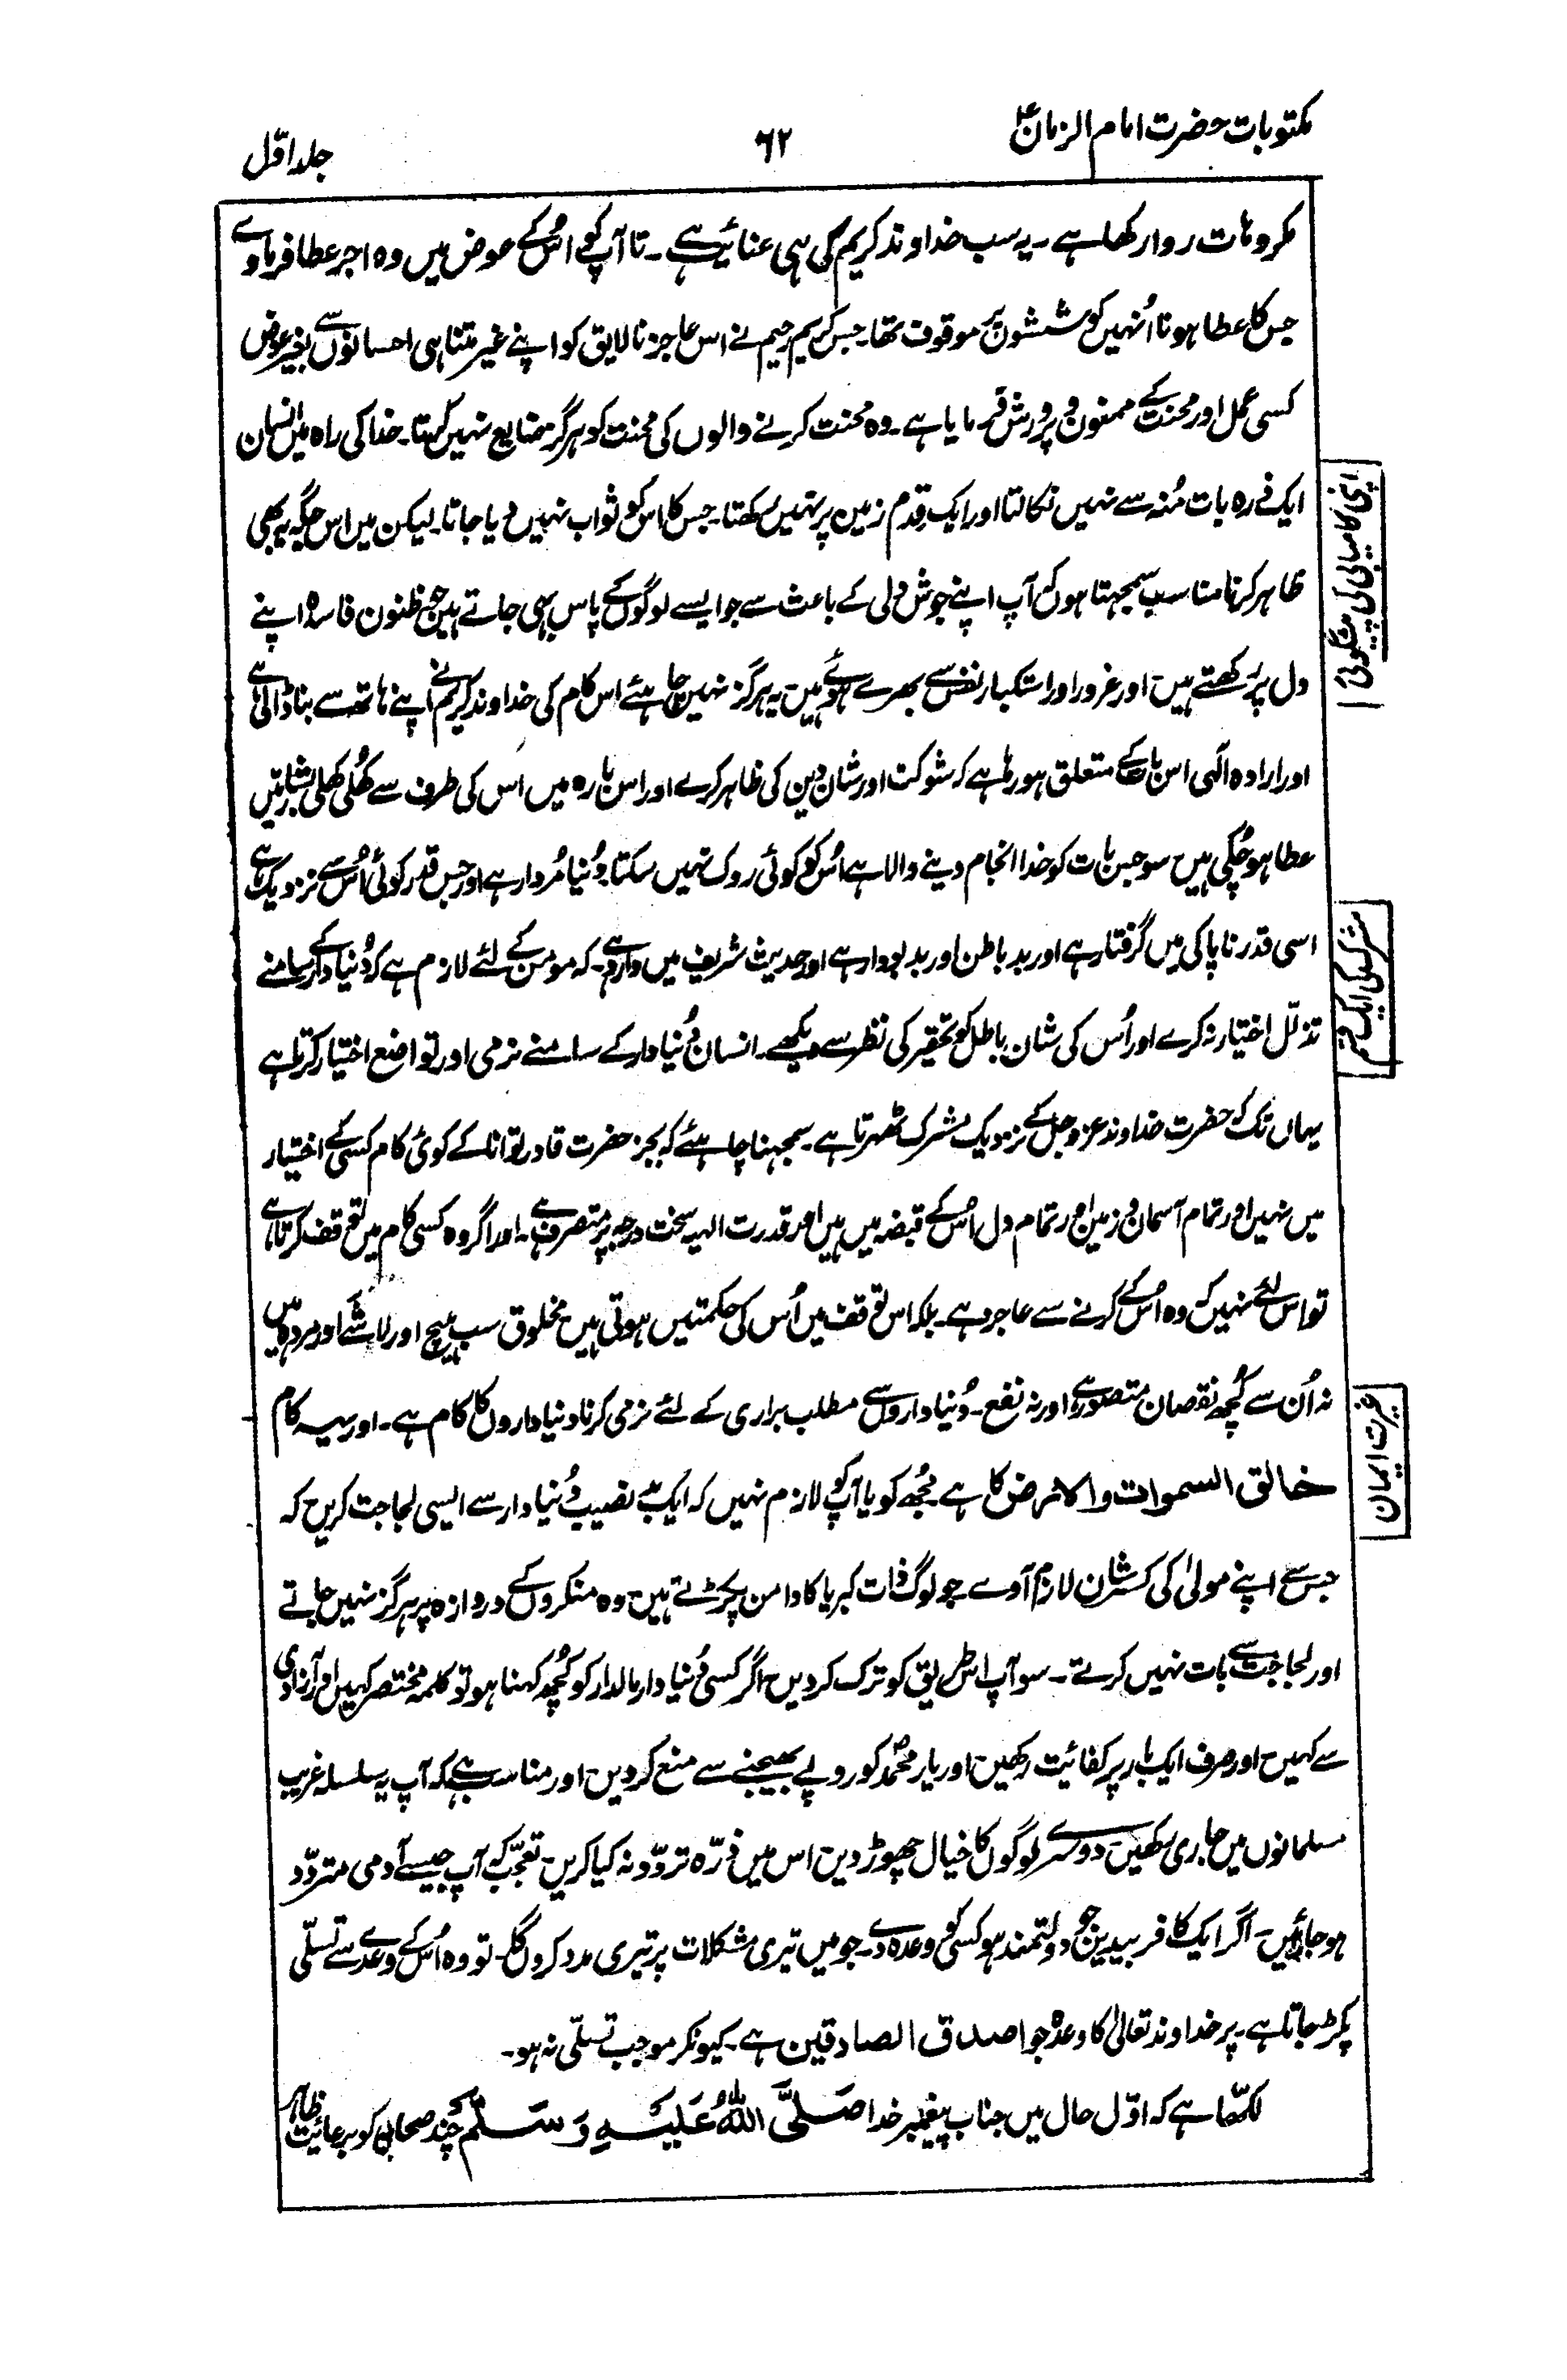 مکتوبات حضرت امام الزمانؑ ۶۲ جلد اوّل
مکروہات روا رکھا ہے۔ یہ سب خداوند کریم کی ہی عنائیت ہے۔ تا آپ کو اُس کے عوض میں وہ اجر عطا فرماوے
جس کا عطا ہونا اُنہیں کوششوں پر موقوف تھا۔ جس کریم رحیم نے اس عاجز نالایق کو اپنے غیر متناہی احسانوں سے بغیر عوض
کسی عمل اور محنت کے ممنون و پرورش فرمایا ہے۔ وہ محنت کرنے والوں کی محنت کو ہرگز ضایع نہیں کرتا۔ خدا کی راہ میں انسان
ایک ذرہ بات مُنہ سے نہیں نکالتا اور ایک قدم زمین پر نہیں رکھتا۔ جس کا اس کو ثواب نہیں دیا جاتا۔ لیکن میں اس جگہ یہ بھی
ظاہر کرنا مناسب سمجہتا ہوں کہ آپ اپنے جوش دلی کے باعث سے جو ایسے لوگوں کے پاس بہی جاتے ہیں جو ظنون فاسدہ اپنے
دل پر رکھتے ہیں اور غرور اور استکبار نفس سے بھرے ہوئے ہیں یہ ہرگز نہیں چاہئے اس کام کی خداوند کریم نے اپنے ہاتھ سے بنا ڈالی ہے
اور ارادہ الٰہی اس بات کے متعلق ہو رہا ہے کہ شوکت اور شان دین کی ظاہر کرے اور اس بارہ میں اس کی طرف سے کُھلی کُھلی بشارتیں
عطا ہو چُکی ہیں سو جس بات کو خدا انجام دینے والا ہے اُس کو کوئی روک نہیں سکتا۔ دُنیا مُردار ہے اور جس قدر کوئی اُس سے نزدیک ہے
اسی قدر ناپاکی میں گرفتار ہے اور بد باطن اور بدبودار ہے اور حدیث شریف میں وارد ہے۔ کہ مومن کے لئے لازم ہے کہ دُنیا دار کے سامنے
تذلّل اختیار نہ کرے اور اُس کی شان باطل کو تحقیر کی نظر سے دیکھے۔ انسان دُنیا دار کے سامنے نرمی اور تواضع اختیار کرتا ہے
یہاں تک کہ حضرت خداوند عزوجل کے نزدیک مشرک ٹھہرتا ہے۔ سمجہنا چاہئے کہ بجز حضرت قادر توانا کے کوئی کام کسی کے اختیار
میں نہیں اور تمام آسمان و زمین اور تمام دل اُس کے قبضہ میں ہیں اور قدرت الہیہ سخت درجہ پر متصرف ہے۔ اور اگر وہ کسی کام میں توقف کرتا ہے
تو اس لئے نہیں کہ وہ اُس کے کرنے سے عاجز ہے۔ بلکہ اس توقف میں اُس کی حکمتیں ہوتی ہیں مخلوق سب ہیچ اور لاشے اور مردہ ہیں
نہ اُن سے کُچھ نقصان متصور ہے اور نہ نفع۔ دُنیا داروں سے مطلب براری کے لئے نرمی کرنا دنیا داروں کا کام ہے۔ اور یہ کام
خالق السموات والارض کا ہے۔ مُجھ کو یا آپ کو لازم نہیں کہ ایک بے نصیب دُنیا دار سے ایسی لجاجت کریں کہ
جس سے اپنے مولیٰ کی کسرشان لازم آوے جو لوگ ذات کبریا کا دامن پکڑتے ہیں وہ منکروں کے دروازہ پر ہرگز نہیں جاتے
اور لجاجت سے بات نہیں کرتے۔ سو آپ اس طریق کو ترک کر دیں اگر کسی دُنیا دار مالدار کو کُچھ کہنا ہو تو کلمہ مختصر کہیں اور آزادی
سے کہیں اور صرف ایک بار پر کفائیت رکھیں اور یار محمدؐ کو روپے بھیجنے سے منع کر دیں اور مناسب ہے کہ آپ یہ سلسلہ غریب
مسلمانوں میں جاری رکھیں دوسرے لوگوں کا خیال چھوڑ دیں اس میں ذرّہ تردّد نہ کیا کریں تعجّب کہ آپ جیسے آدمی متردّد
ہو جائیں۔ اگر ایک کافر بیدین جو دولتمند ہو کسی کو وعدہ دے۔ جو میں تیری مشکلات پر تیری مدد کروں گا۔ تو وہ اُس کے وعدے سے تسلّی
پکڑ جاتا ہے۔ پر خداوند تعالیٰ کا وعدہ جو اصدق الصادقین ہے۔ کیونکر موجب تسلّی نہ ہو۔
لکھّا ہے کہ اوّل حال میں جناب پیغمبر خدا صَلَّی اللّٰہُ عَلَیْہِ وَ سَلَّمْ چند صحابہ کو برعائیت ظاہر
اپنی کامیابی کی پیشگوئی
شرک کی ایک قسم
غیرت ایمان